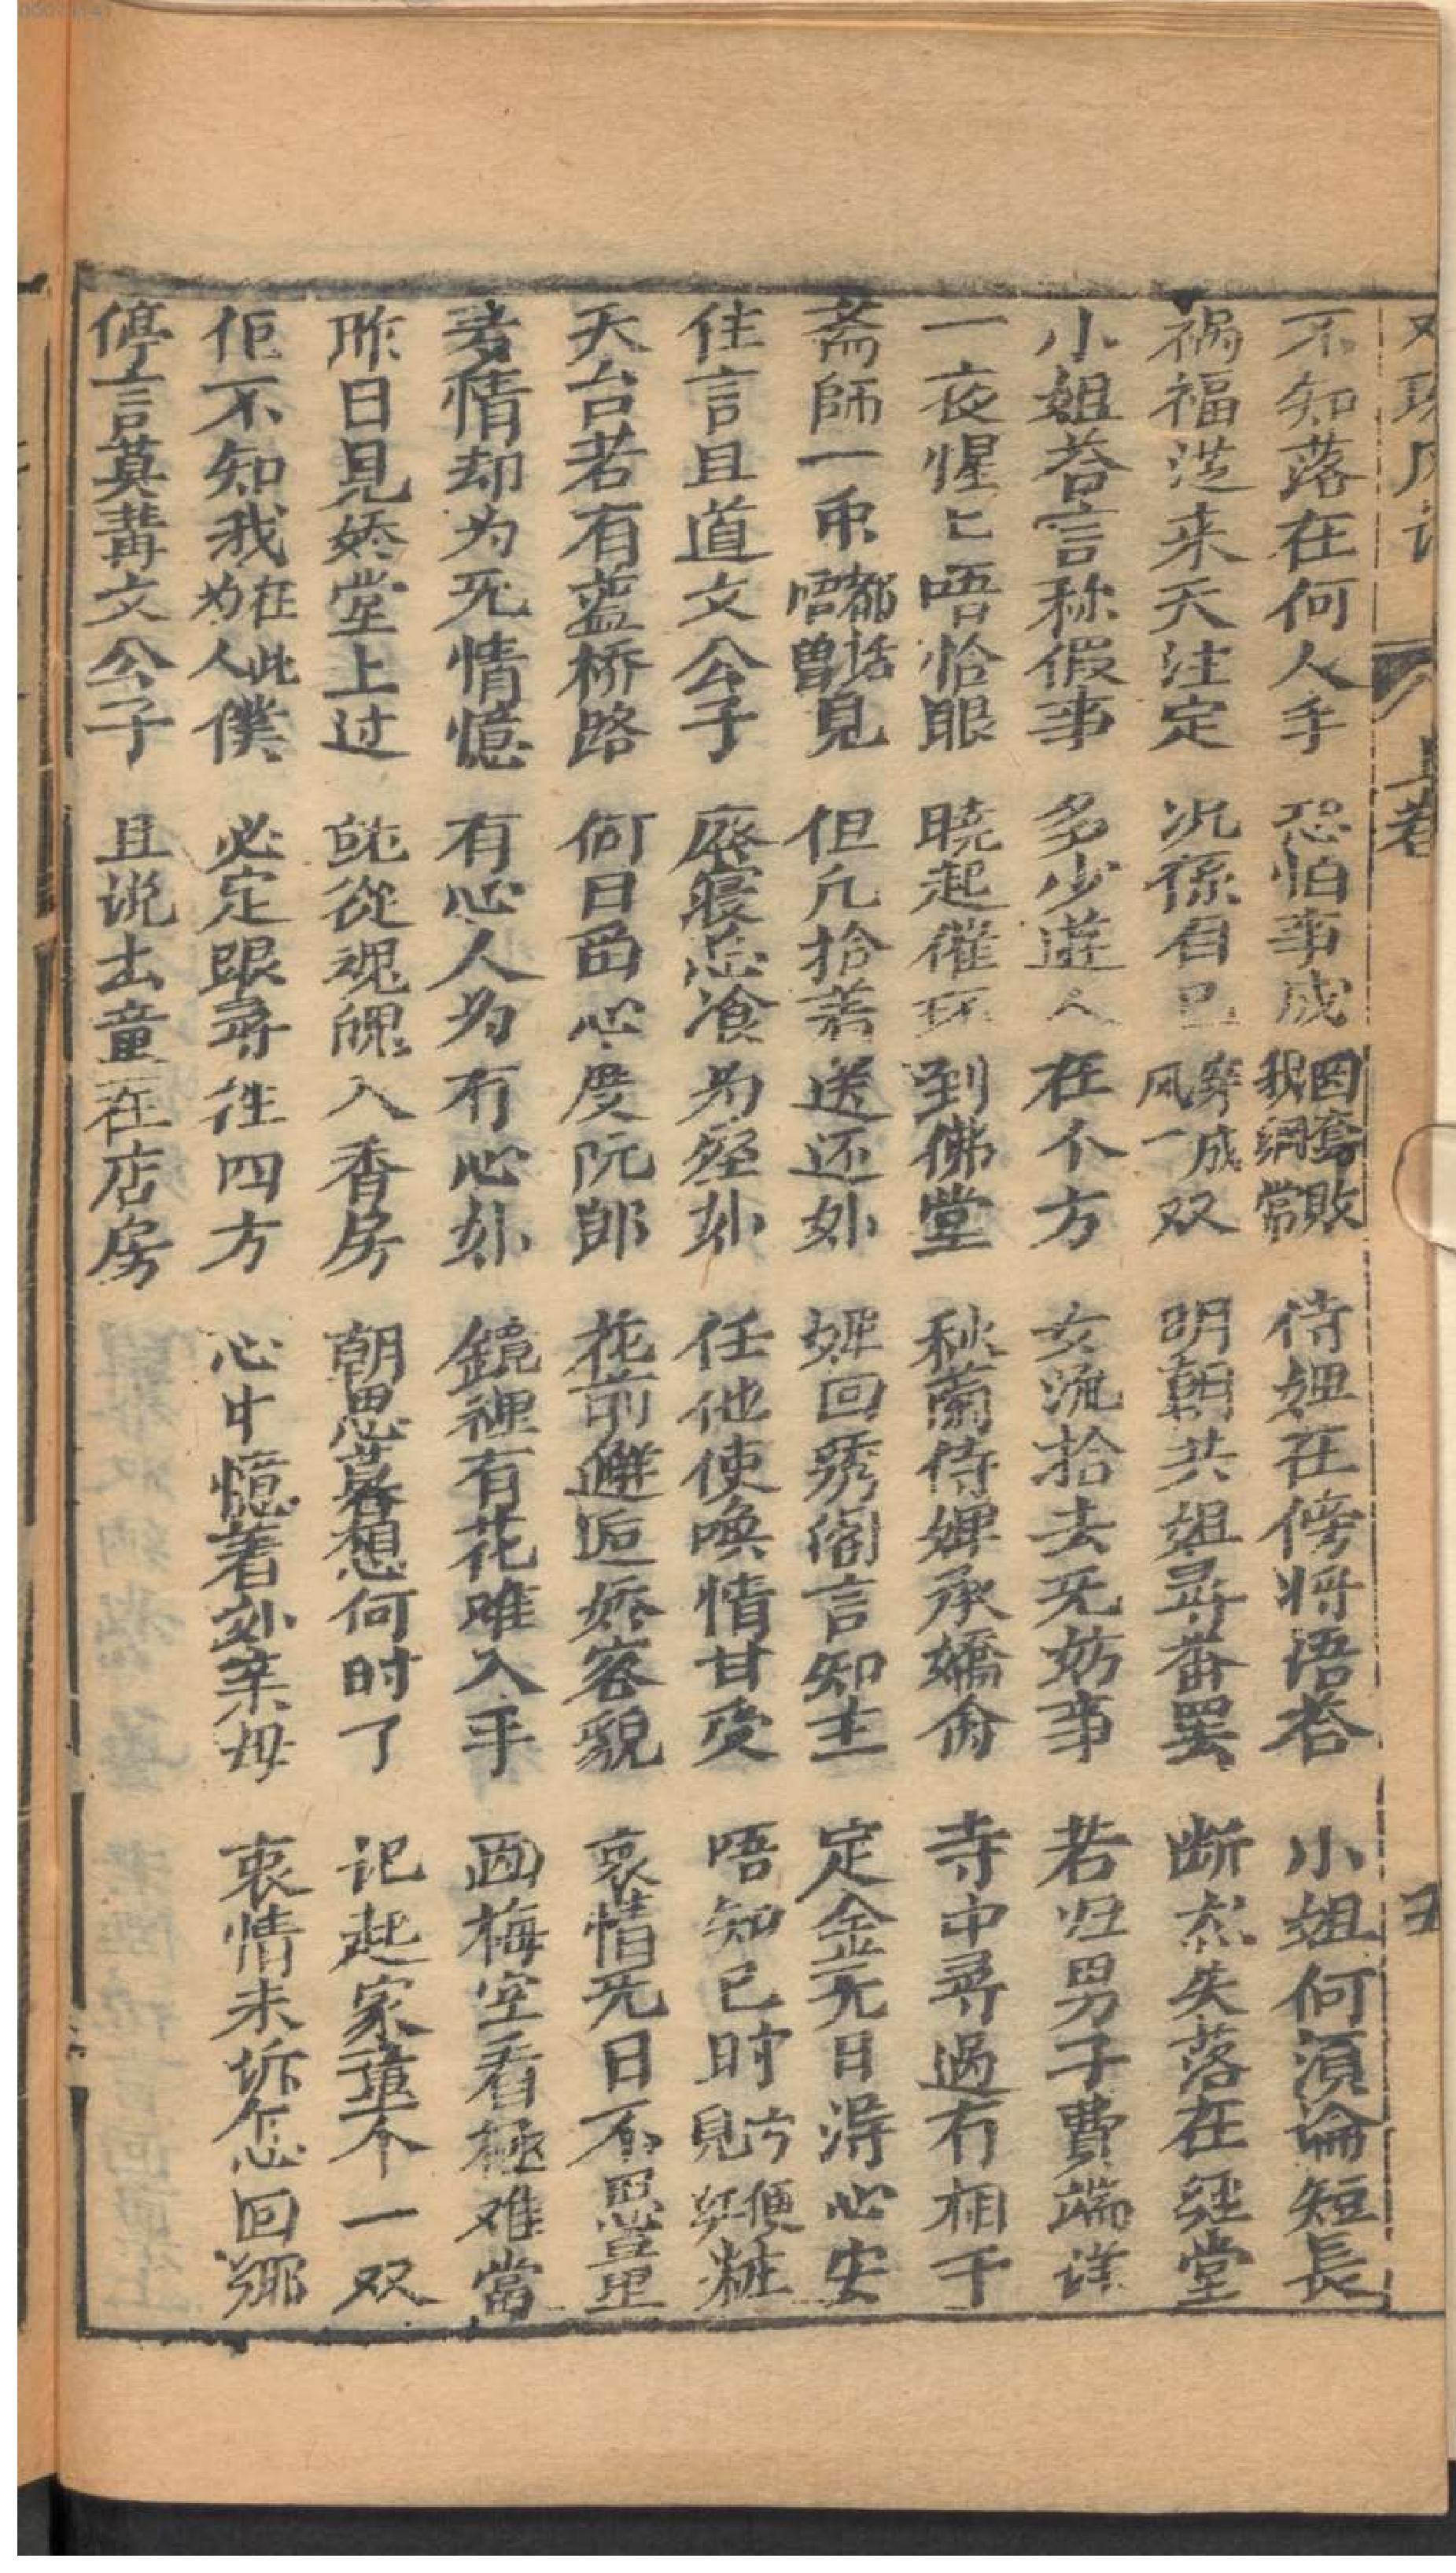 上卷
五
不知落在何人手 恐怕事成圈套敗我綱常 侍妞在傍将语答 小姐何湏論短長
祸福从来天注定 况係自己穿成风一双 明朝共姐尋畨罢 断然失落在經堂
小姐荅言称假事 多少遊人在个方 女流拾去无妨事 若归男子費端详
一夜惺匕唔恰眼 晓起催环到佛堂 秋蘭侍婢承嬌命 寺中尋過冇相干
斋師一眾都话唔曾見 但凡拾着送还他 婢回秀阁言知主 定金无日得心安
住言且道文公子 廢寝忘飡为挂他 任他使唤情甘受 唔知已时亐便見娇粧
天台若有蓝桥路 何日留心度阮郎 花前邂逅娇容貌 衷情无日不思量
多情却为死情憶 有心人为有心他 鏡裡有花难入手 画梅空看極难當
昨日見娇堂上过 就從魂魄入香房 朝思暮想何时了 记起家童个一双
佢不知我在此为人僕 必定跟尋往四方 心中憶着妣亲母 衷情未訴怎回鄉
停言莫講文公子 且说书童在店房